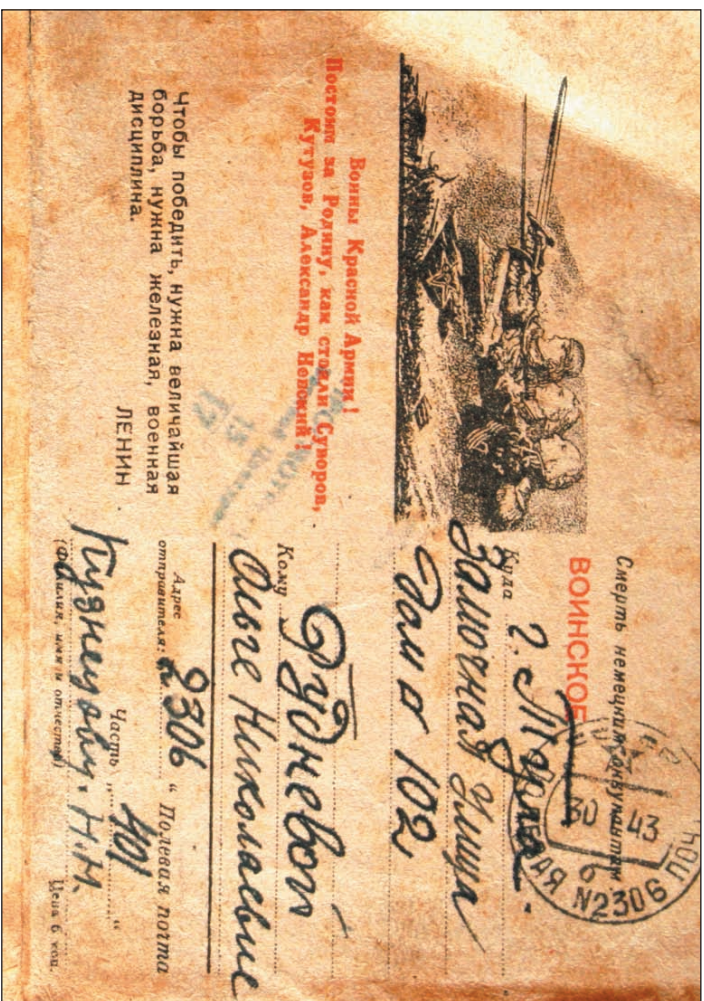 Смерть немецким оккупантам
ВОИНСКОЕ
Куда г. Тула.
Замочная Улица
дом № 102
Кому Рудневой
Ольге Николаевне
Адрес
отправителя: 2306 " Полевая почта
Часть " 401 "
Кузнецову. Н. Н.
(Фамилия, имя и отчество)
Цена 6 коп.
Воины Красной Армии!
Постоим за Родину, как стояли Суворов,
Кутузов, Александр Невский!
Чтобы победить, нужна величайшая
борьба, нужна железная, военная
дисциплина.
ЛЕНИН
30 43
6
№2306